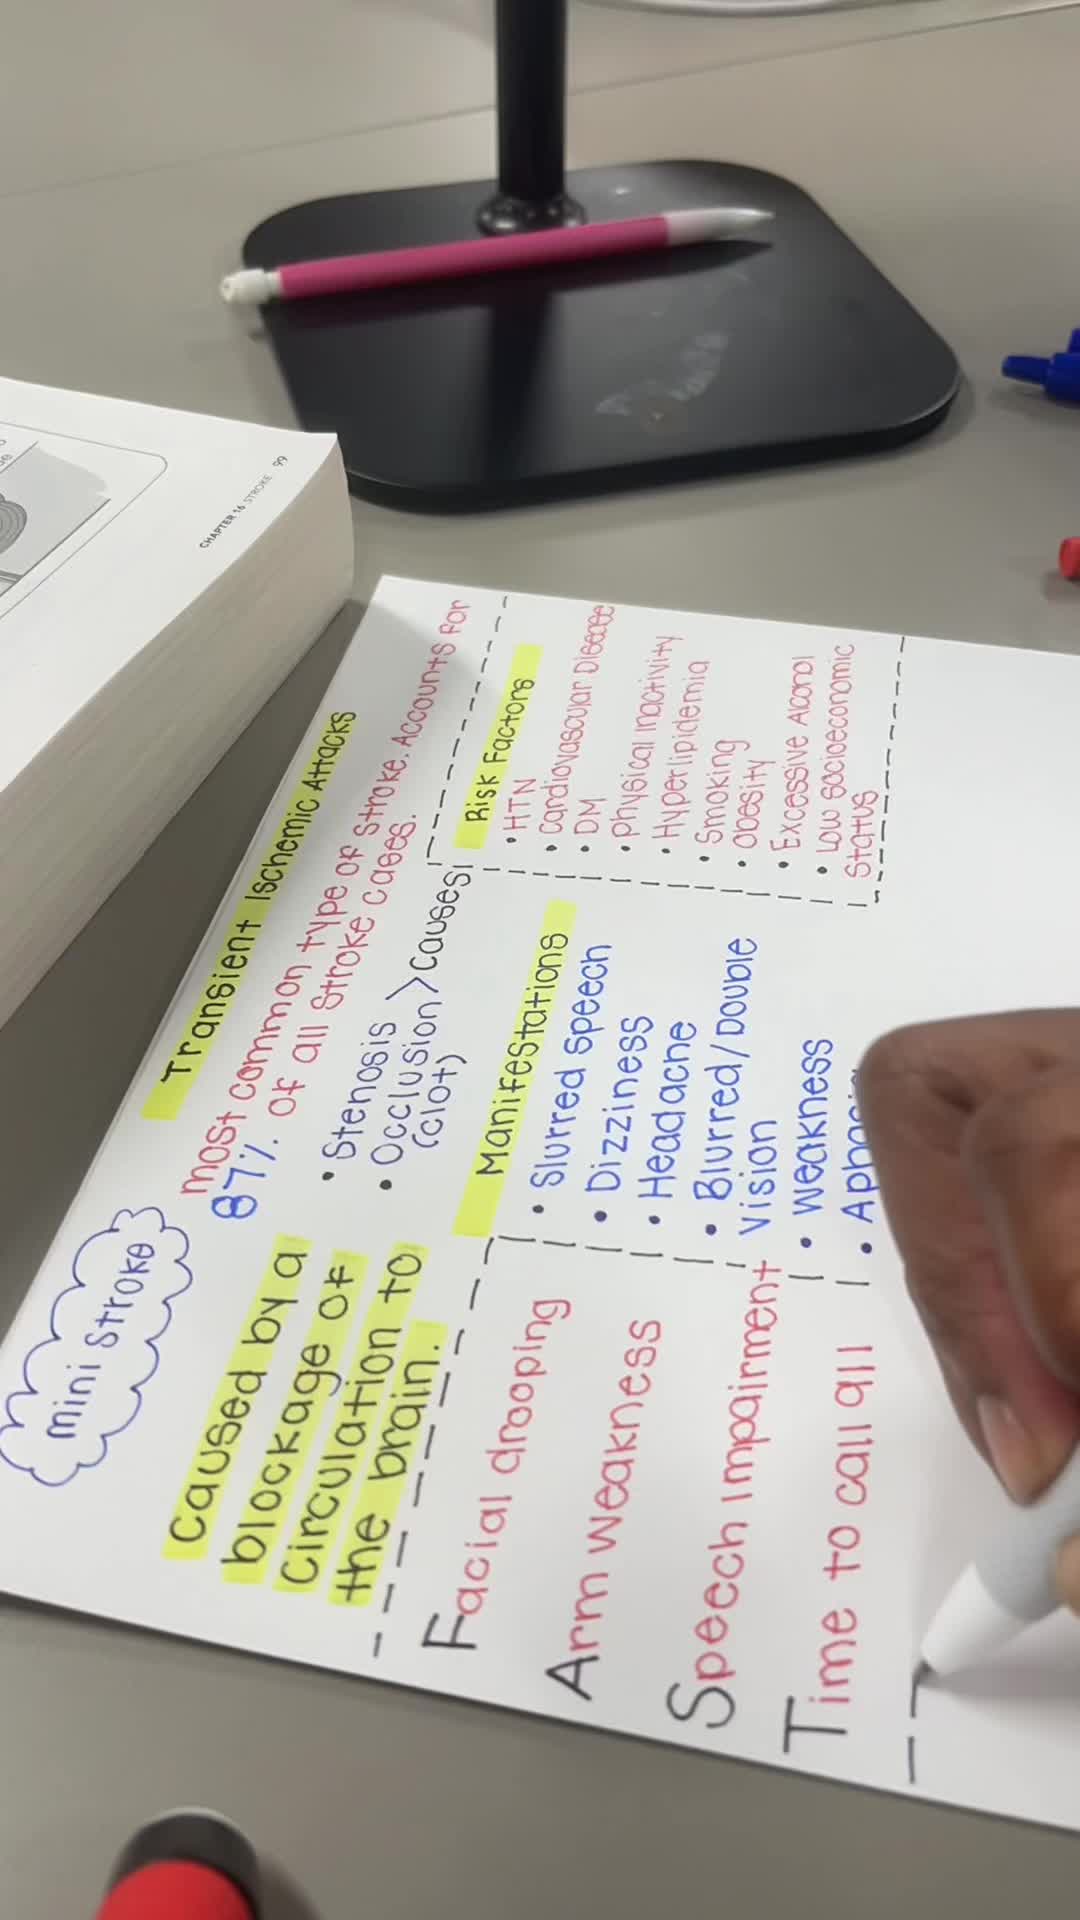 CHAPTER 16 STROKE 99
Mini Stroke
Transient Ischemic Attacks
caused by a
blockage of
circulation to
the brain.
most common type of stroke. Accounts for
87% of all stroke cases.
• Stenosis
• Occlusion > causes
(clot)
Facial drooping
Arm weakness
Speech impairment
Time to call all
Manifestations
• Slurred speech
• Dizziness
• Headache
• Blurred/Double
Vision
• Weakness
Risk Factors
• HTN
• Cardiovascular Disease
• DM
• Physical inactivity
• Hyperlipidemia
• Smoking
• Obesity
• Excessive Alcohol
• Low socioeconomic
Status